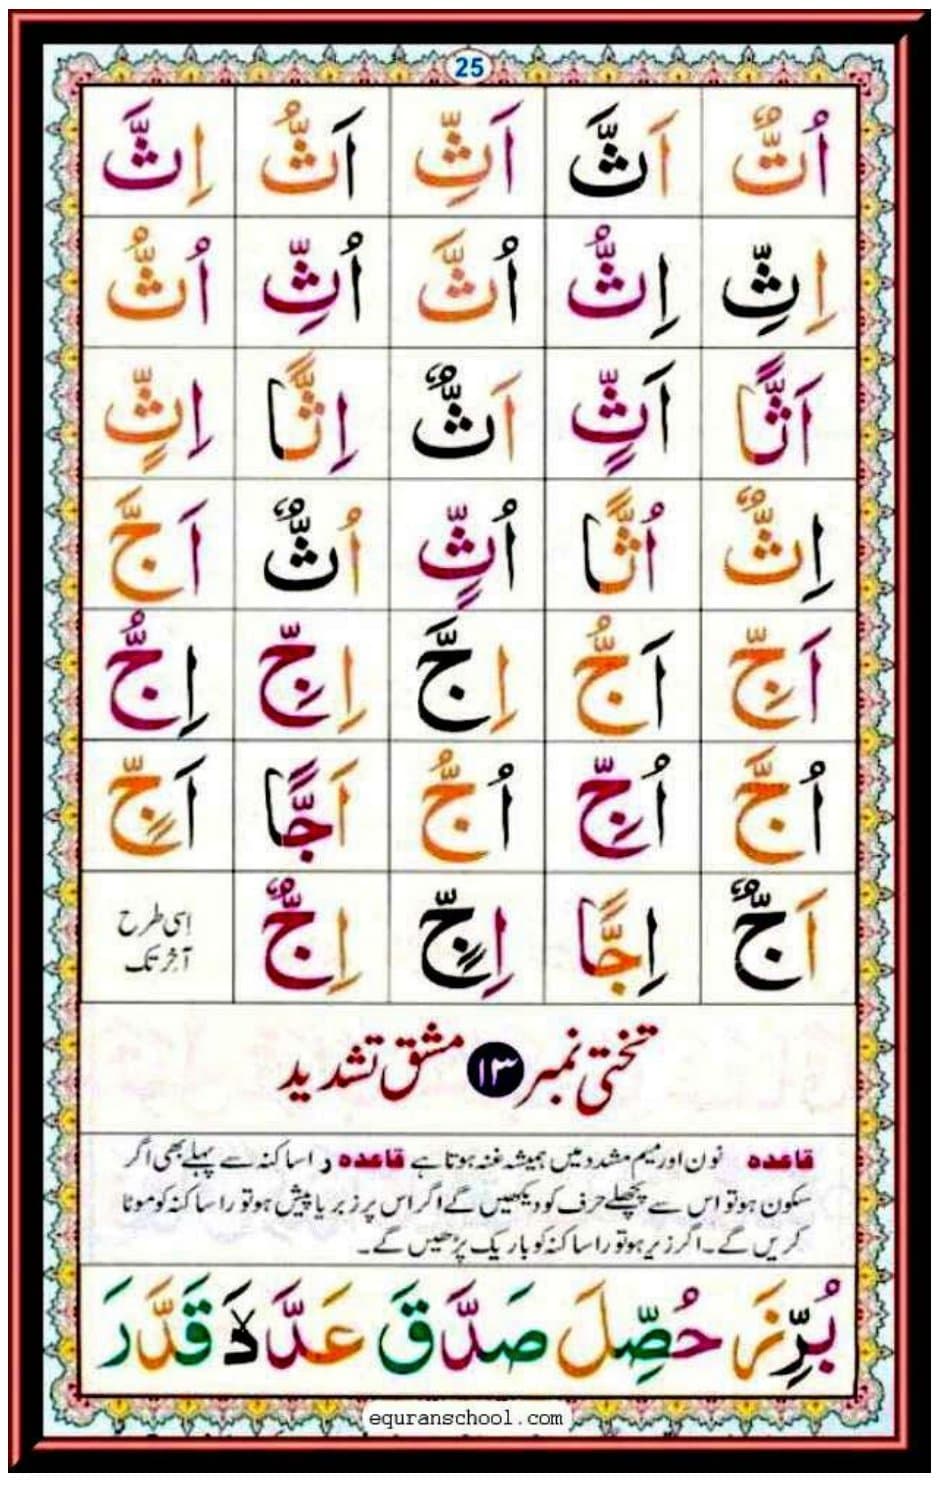 25
اُتٌّ اَثَّ اَثِّ اَثُّ اِثَّ
اِثِّ اِثُّ اُثَّ اُثِّ اُثُّ
اَثًّا اَثٍّ اَثٌّ اِثًّا اِثٍّ
اِثٌّ اُثًّا اُثٍّ اُثٌّ اَجَّ
اَجِّ اَجُّ اِجَّ اِجِّ اِجُّ
اُجَّ اُجِّ اُجُّ اَجًّا اَجٍّ
اَجٌّ اِجًّا اِجٍّ اِجٌّ اسی طرح
آخر تک
تختی نمبر ۱۳ مشق تشدید
قاعدہ نون اور میم مشدد میں ہمیشہ غنہ ہوتا ہے قاعدہ را ساکنہ سے پہلے بھی اگر
سکون ہو تو اس سے پچھلے حرف کو دیکھیں گے اگر اس پر زبر یا پیش ہو تو را ساکنہ کو موٹا
کریں گے۔ اگر زیر ہو تو را ساکنہ کو باریک پڑھیں گے۔
بُرِّزَ حُصِّلَ صَدَّقَ عَدَّدَ قَدَّرَ
equranschool.com